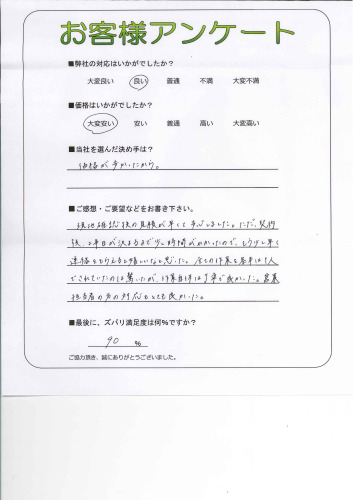 お客様アンケート
■弊社の対応はいかがでしたか?
大変良い 良い 普通 不満 大変不満
■価格はいかがでしたか?
大変安い 安い 普通 高い 大変高い
■当社を選んだ決め手は?
価格が安かったから。
■ご感想・ご要望などをお書き下さい。
現地確認後の見積が早くて安心しました。ただ、契約
後、工事日が決まるまで少し時間がかかったので、もう少し早く
連絡をもらえると嬉しいなと思った。全ての作業を基本は1人
でされていたのは驚いたが、作業自体は丁寧で良かった。営業
担当者の方の対応もとても良かった。
■最後に、ズバリ満足度は何%ですか?
90 %
ご協力頂き、誠にありがとうございました。